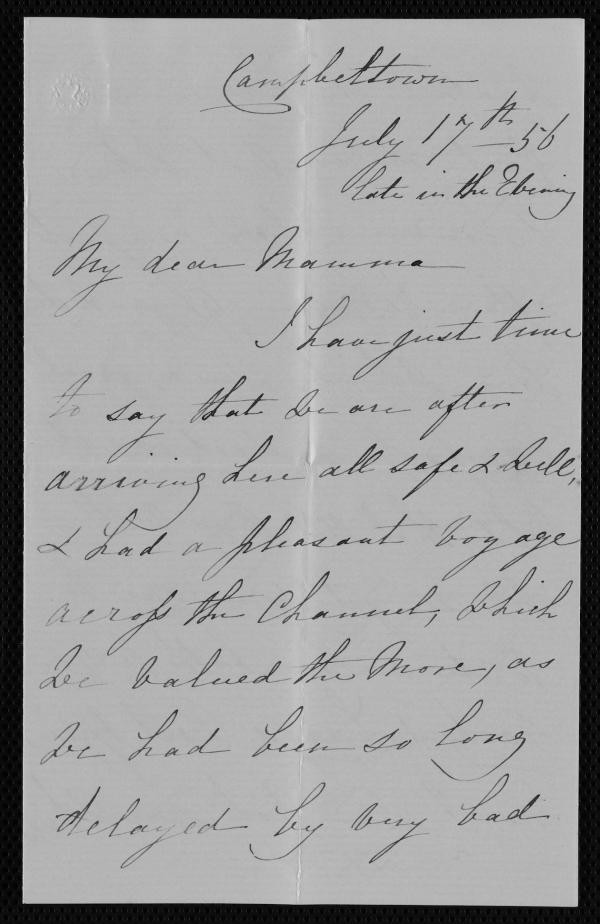 Campbeltown
July 17th - 56
late in the Evening
My dear Mamma
I have just time
to say that we are after
arriving here all safe & well,
& had a pleasant voyage
across the Channel, which
we valued the more, as
we had been so long
delayed by very bad